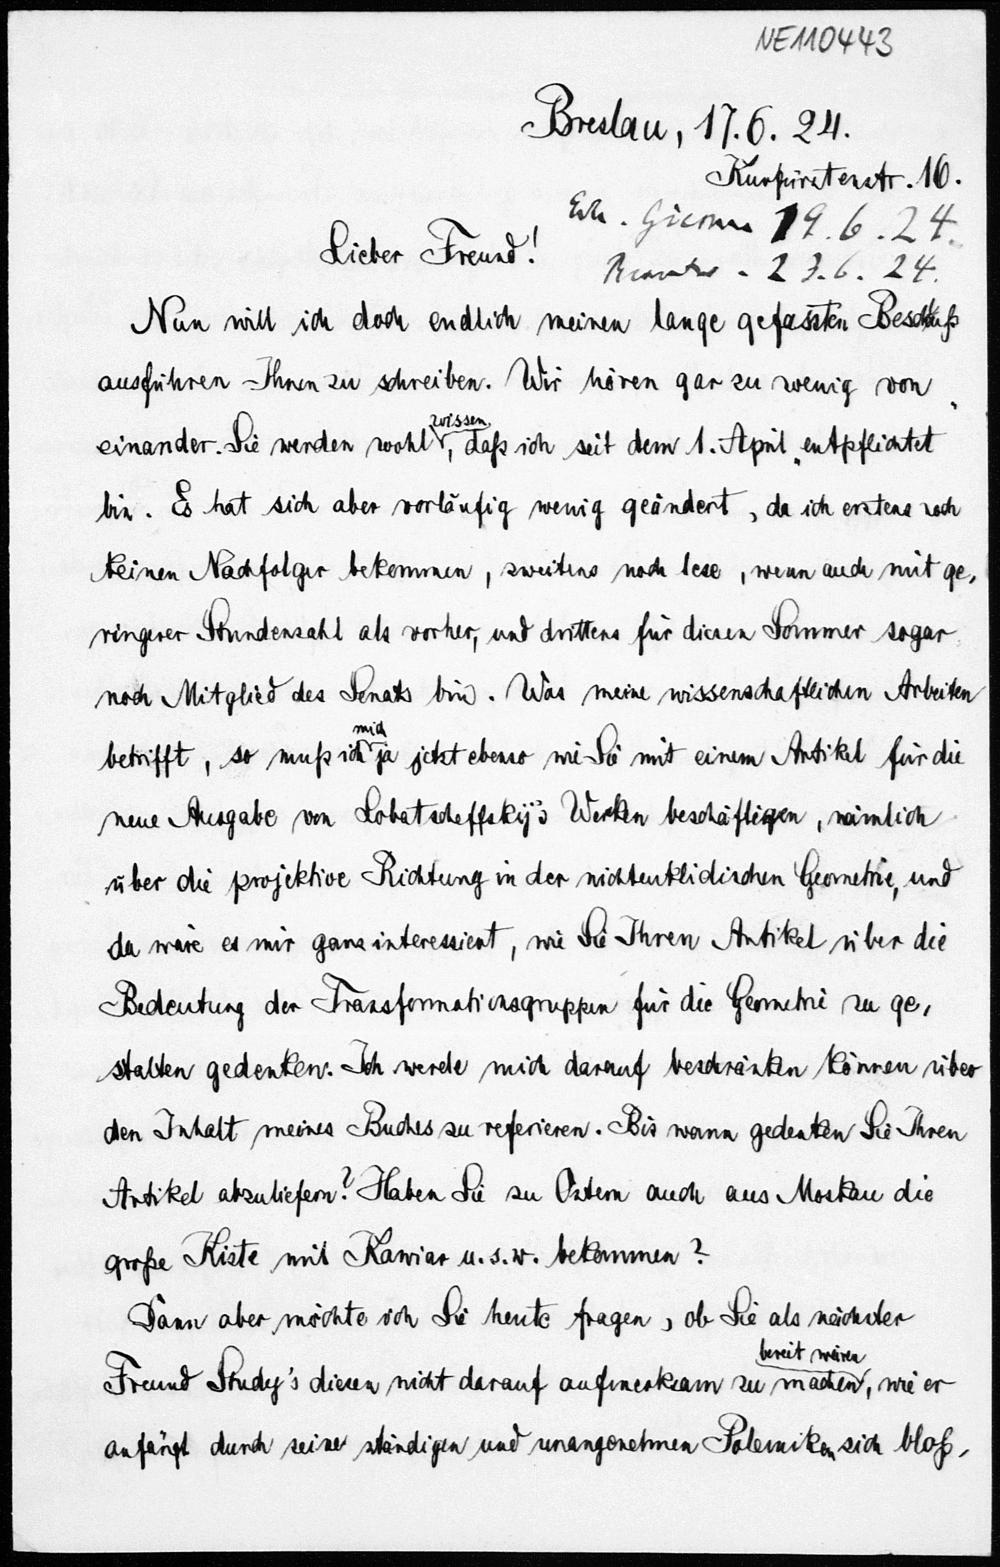 NE110443
Breslau, 17.6.24.
Kurfürstenstr. 16.
Erh. Giessen 19.6.24.
Lieber Freund!
Beantw. - 23.6.24.
Nun will ich doch endlich meinen lange gefassten Beschluß
ausführen Ihnen zu schreiben. Wir hören gar zu wenig von
einander. Sie werden wohl wissen, daß ich seit dem 1. April „entpflichtet"
bin. Es hat sich aber vorläufig wenig geändert, da ich erstens noch
keinen Nachfolger bekommen, zweitens noch lese, wenn auch mit ge-
ringerer Stundenzahl als vorher, und drittens für diesen Sommer sogar
noch Mitglied des Senats bin. Was meine wissenschaftlichen Arbeiten
betrifft, so muß ich mich ja jetzt ebenso wie Sie mit einem Artikel für die
neue Ausgabe von Lobatscheffskij's Werken beschäftigen, nämlich
über die projektive Richtung in der nichteuklidischen Geometrie, und
da wäre es mir ganz interessient, wie Sie Ihren Artikel über die
Bedeutung der Transformationsgruppen für die Geometrie zu ge-
stalten gedenken. Ich werde mich darauf beschränken können über
den Inhalt meines Buches zu referieren. Bis wann gedenken Sie Ihren
Artikel abzuliefern? Haben Sie zu Ostern auch aus Moskau die
große Kiste mit Kawiar u.s.w. bekommen?
Dann aber möchte ich Sie heute fragen, ob Sie als nächster
Freund Study's diesen nicht darauf aufmerksam zu machen bereit wären, wie er
anfängt durch seine ständigen und unangenehmen Polemiken sich bloß-